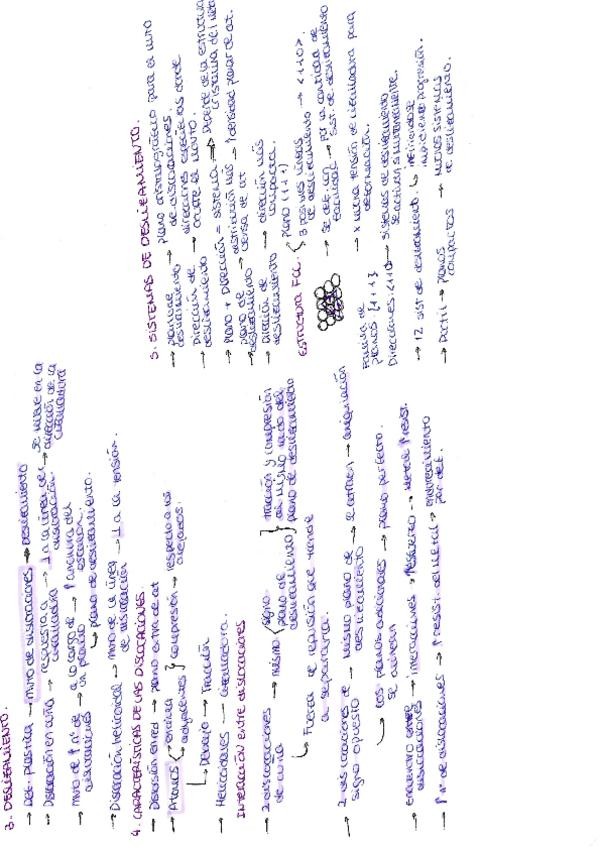 3. DESLIZAMIENTO.
→ Def. plástica → mvto de dislocaciones → deslizamiento
→ Dislocación en cuña → respuesta a cizalladura → ⊥ a la línea de dislocación. → se mueve en la dirección de la cizalladura
→ mvto de ↑ nº de dislocaciones → a lo largo de un plano → ↑ anchura del escalón.
↳ plano de deslizamiento.
→ Dislocación helicoidal → mvto de la línea de dislocación → ⊥ a la tensión.
4. CARACTERÍSTICAS DE LAS DISLOCACIONES.
→ Distorsión en red → plano extra de at
→ Átomos → encima adyacentes } compresión → respecto a los alejados.
↳ Debajo → Tracción
→ Helicoidales → cizalladura.
INTERACCIÓN ENTRE DISLOCACIONES
→ 2 dislocaciones de cuña → mismo { signo plano de deslizamiento } tracción y compresión al mismo lado del plano de deslizamiento
↳ Fuerza de repulsión que tiende a separarla.
→ 2 dislocaciones de signo opuesto → mismo plano de deslizamiento → se atraen → aniquilación
↳ los planos adicionales se alinean → plano perfecto.
→ encuentro entre dislocaciones → interacciones → Metal ↑ resist.
→ ↑ nº de dislocaciones → ↑ resist. del metal → endurecimiento por def.
5. SISTEMAS DE DESLIZAMIENTO.
→ plano de deslizamiento → plano cristalográfico para el mvto de dislocaciones.
→ Dirección de deslizamiento → direcciones específicas donde ocurre el mvto.
→ Plano + Dirección = sistema → Depende de la estructura cristalina del metal
→ plano de deslizamiento → distribución más densa de at → ↑ densidad planar de at.
→ Dirección de deslizamiento → dirección más compacta.
ESTRUCTURA FCC { plano (111)
3 posibles líneas de deslizamiento → <110>.
→ se def. con facilidad → por la cantidad de sist. de deslizamiento
→ x mucha tensión de cizalladura para deformación.
Familia de planos: {111}
Direcciones <110> → sistemas de deslizamiento se activan simultáneamente.
→ 12 sist de deslizamiento.
→ Dúctil → planos compactos → nuevos sistemas de deslizamiento.